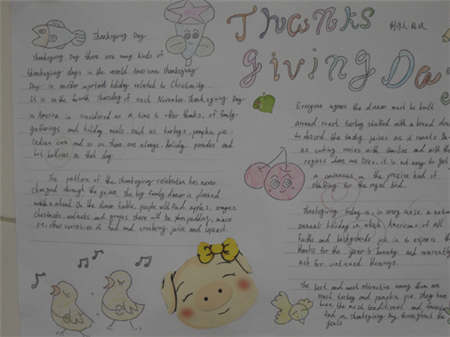 Thanksgiving Day
Thanksgiving Day there are many kinds of
thanksgiving days in the world. American Thanksgiving
Day is another important holiday related to Christianity.
It is on the fourth Thursday of each November. Thanksgiving Day
in America is considered as a time to offer thanks, of family
gatherings and holiday meals, such as turkeys, pumpkin pie,
Indian corn and so on. There are always holiday parades and
on that day.
The pattern of the thanksgiving celebration has never
changed through the years. The big family dinner is planned
months ahead. On the dinner table, people will find apples, oranges
chestnuts, walnuts and grapes. There will be plum pudding, mince
pie, other and cranberry juice and squash.
Thanks
Giving Day
Everyone agrees the dinner must be built
around roast turkey stuffed with a bread
as
as cooking varies with families and with the
regions where one lives, it is not easy to get
a consensus on the precise kind of
stuffing for the royal bird.
Thanksgiving today is, in every sense, a
annual holiday in which Americans of all
faiths and backgrounds join in to express
thanks for the year's bounty and reverently
ask for continued blessings.
The best and most attractive among them are
roast turkey and pumpkin pie. They have
been the most traditional and
food on thanksgiving day throughout the